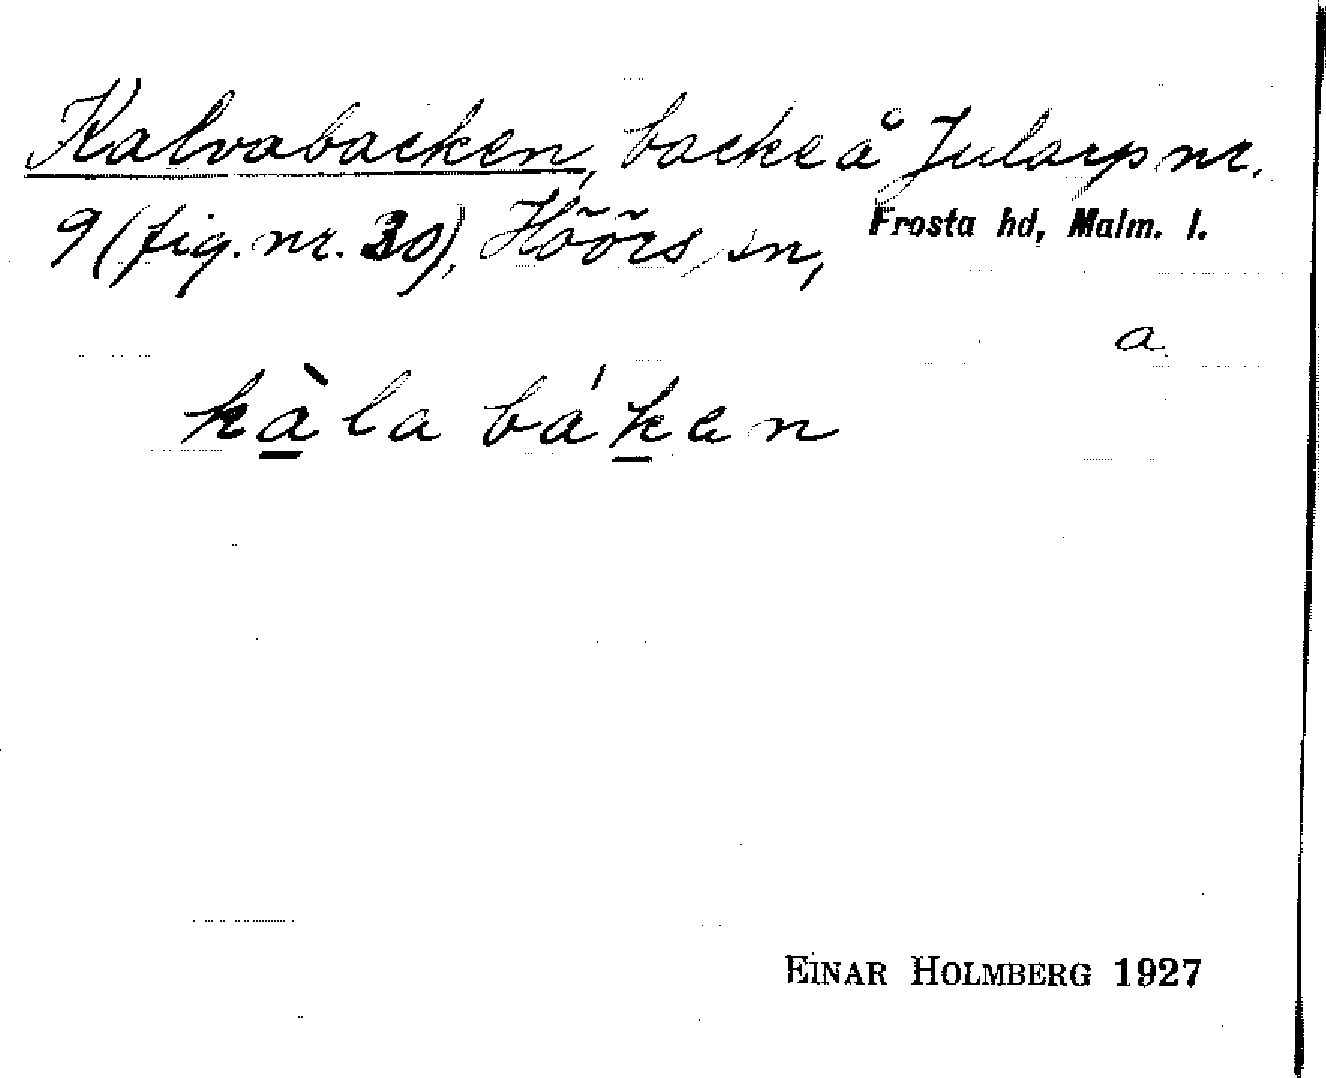 Kalvabacken, backe å Jularp nr.
9 (fig. nr. 30), Höörs sn, Frosta hd, Malm. l.
a
kàla bákan
EINAR HOLMBERG 1927